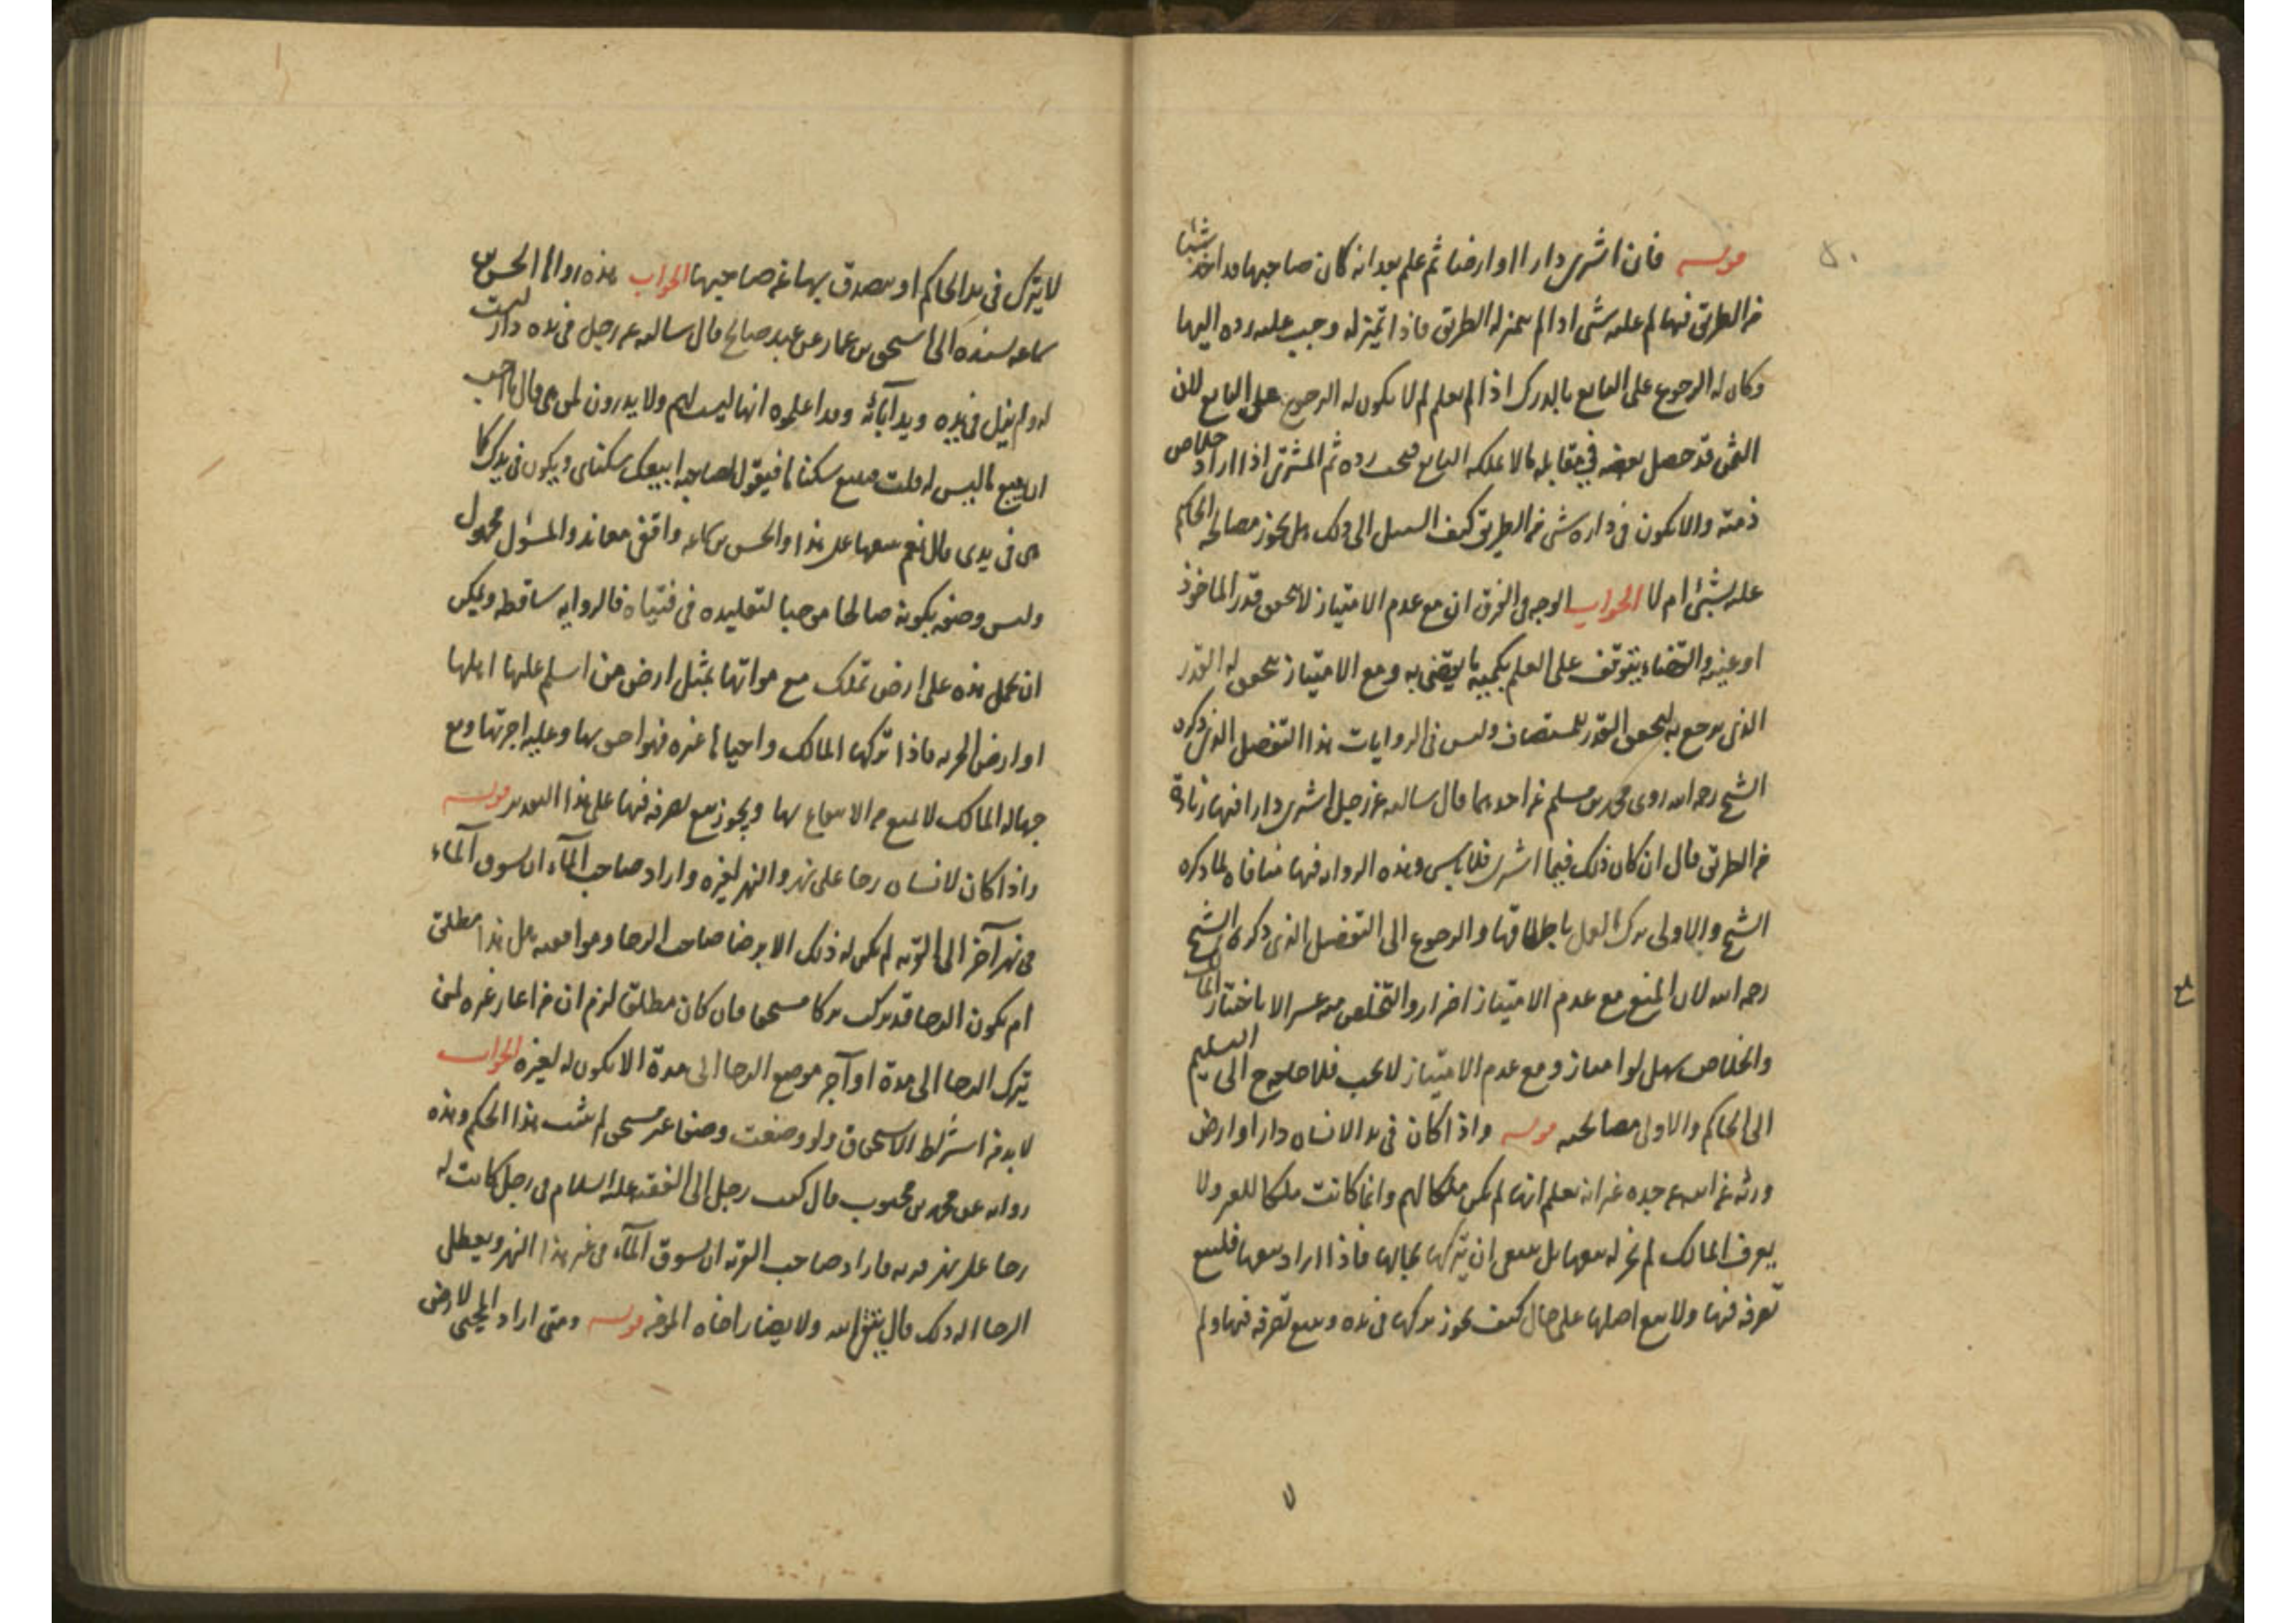 قوله فان اشترى دارا او ارضا ثم علم بعد انه كان صاحبها قد اخذ شيئا
من الطريق فيها لم عليه شى اذا لم يتميز له الطريق فاذا تميز له وجب عليه رده اليها
وكان له الرجوع على البايع بالدرك اذا لم يعلم لم لا يكون له الرجوع على البايع لان
الثمن قد حصل بعضه فى مقابله مالا يملكه البايع فيجب رده ثم المشترى اذا اراد خلاص
ذمته والا يكون فى داره شى من الطريق كيف السبيل الى ذلك هل يجوز مصالحه الحاكم
عليه بشئ ام لا الجواب الوجه فى الفرق ان مع عدم الامتياز لا يتحقق قدر الماخوذ
او عينه والقضاء يتوقف على العلم بكميه ما يقضى به ومع الامتياز يتحقق له القدر
الذى يرجع به لتحقق القدر المستضاف وليس فى الروايات هذا التفصيل الذى ذكره
الشيخ رحمه الله روى محمد بن مسلم عن احدهما قال سالته عن رجل اشترى دارا فيها زيادة
من الطريق قال ان كان ذلك فيما اشترى فلا باس وهذه الروايه فيها منافاه لما ذكره
الشيخ والاولى ترك العمل باطلاقها والرجوع الى التفصيل الذى ذكره الشيخ
رحمه الله لان المنع مع عدم الامتياز اضرار والتخلص منه عسر الا باختيار المالك
والخلاص سهل لو امتاز ومع عدم الامتياز لا يجب فلا حاجة الى التسليم
الى الحاكم والاولى مصالحته قوله واذا كان فى يد الانسان دار او ارض
ورثه عن ابيه عن جده غير انه يعلم انها لم يكن ملكا لهم وانما كانت ملكا للغير ولا
يعرف المالك لم يجز له بيعها بل ينبغى ان يتركها بحالها فاذا اراد بيعها فليبع
تصرفه فيها ولا يبيع اصلها على حال كيف يجوز تركها فى يده وبيع تصرفه فيها ولم
لا يترك فى يد الحاكم او يصدق بها عن صاحبها الجواب هذه رواها الحسن بن
سماعه بسنده الى اسحق بن عمار عن عبد صالح قال سالته عن رجل فى يده دار ليست
له ولم يزل فى يده ويد آبائه وقد اعلموه انها ليست لهم ولا يدرون لمن هى قال ما احب
ان يبيع ما ليس له قلت فيبيع سكناها فيقول لصاحبه ابيعك سكناى ويكون فى يدك كما
هى فى يدى قال نعم يبيعها على هذا والحسن بن سماعه واقفى معاند والمسئول مجهول
وليس وصفه بكونه صالحا موجبا لتقليده فى فتياه فالروايه ساقطه ويمكن
ان يحمل هذه على ارض تملك مع مواتها بمثل ارض من اسلم عليها اهلها
او ارض الجزيه فاذا تركها المالك واحياها غيره فهو احق بها وعليه اجرتها ومع
جهاله المالك لا يمنع من الانتفاع بها ويجوز بيع تصرفه فيها على هذا التقدير قوله
واذا كان لانسان رحا على نهر والنهر لغيره واراد صاحب المآء ان يسوق المآء
فى نهر آخر الى القريه لم يكن له ذلك الا برضا صاحب الرحا وموافقته هل هذا مطلق
ام يكون الرحا قد تركب تركا مستحقا فان كان مطلقا لزم ان من اعار غيره لمن
يترك الرحا الى مدة او آجر موضع الرحا الى مدة الا يكون له لغيره الجواب
لا بد من اشتراط الاستحقاق ولو وضعت وضعا غير مستحق لم يثبت هذا الحكم وهذه
روايه عن محمد بن محبوب قال كتب رجل الى الفقيه عليه السلام فى رجل كانت له
رحا على نهر قريه فاراد صاحب القريه ان يسوق المآء فى غير هذا النهر ويعطل
الرحا اله ذلك قال يتقى الله ولا يضار اخاه المؤمن قوله ومتى اراد المحيى لارض